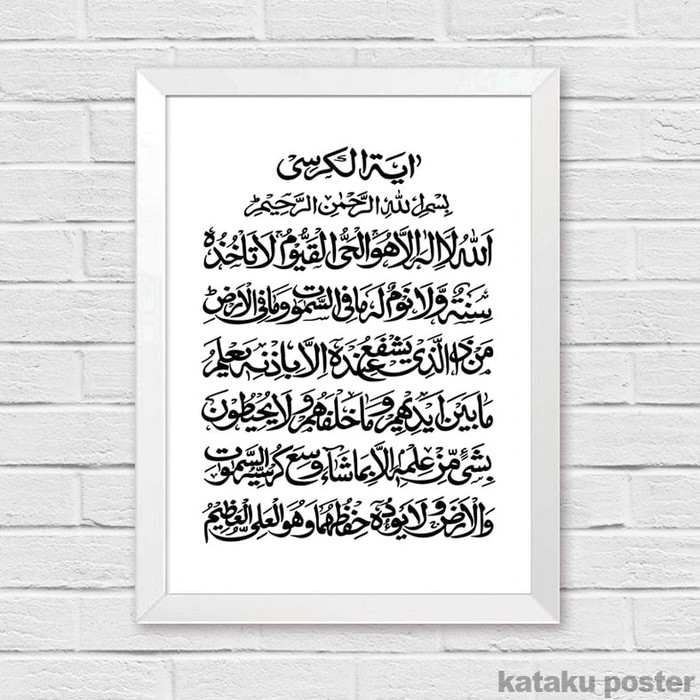 اية الكرسى
بسم الله الرحمن الرحيم
الله لا اله الا هو الحي القيوم لا تأخذه
سنة ولا نوم له ما في السموت وما في الارض
من ذا الذي يشفع عنده الا باذنه يعلم
ما بين ايديهم وما خلفهم ولا يحيطون
بشئ من علمه الا بما شاء وسع كرسيه السموت
والارض ولا يؤده حفظهما وهو العلي العظيم
kataku poster